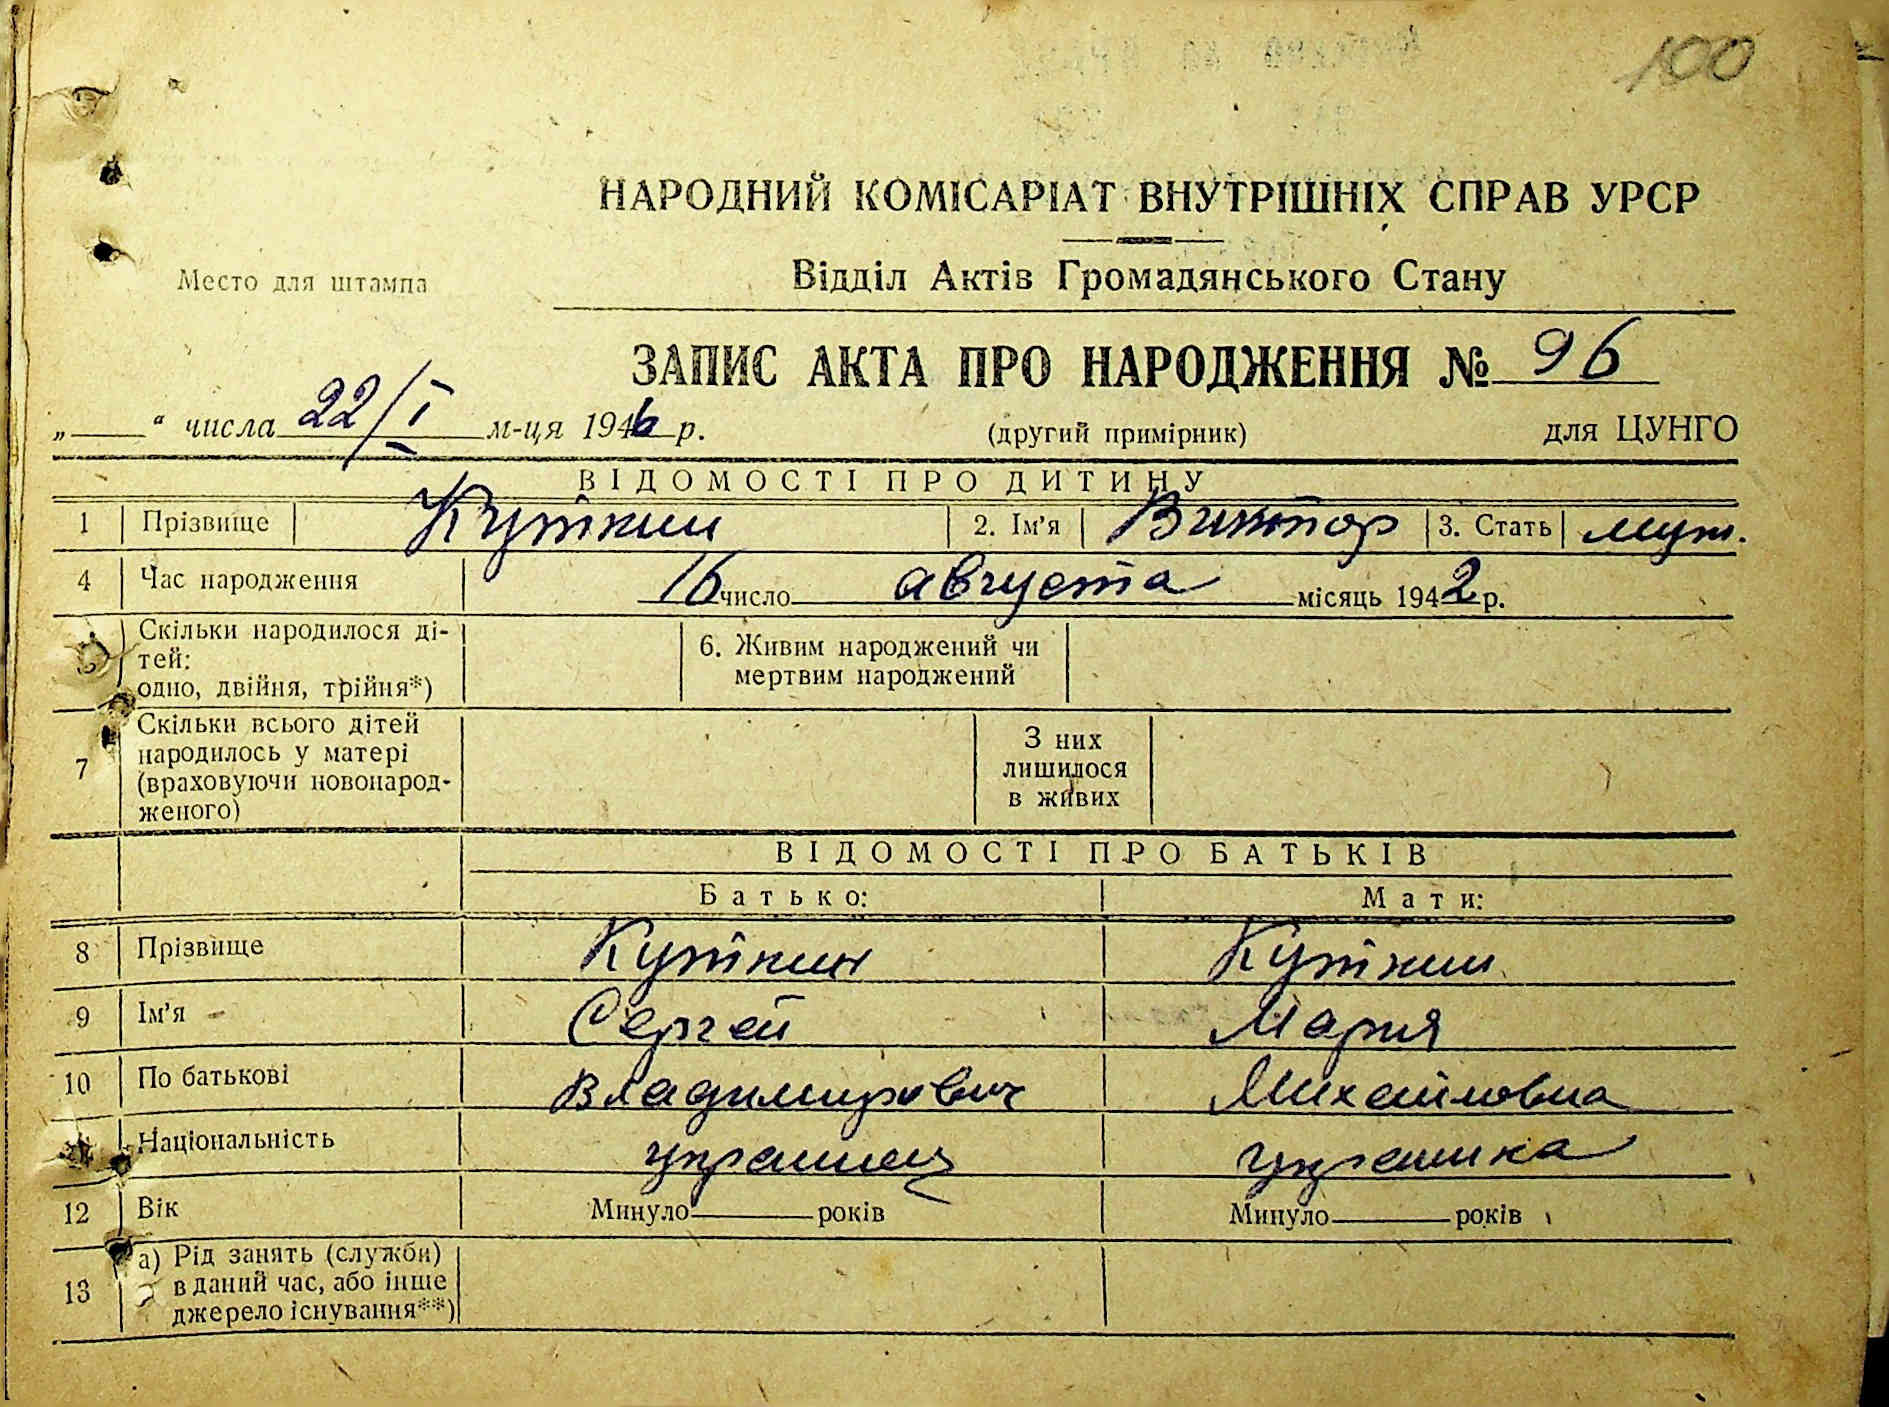 100
НАРОДНИЙ КОМІСАРІАТ ВНУТРІШНІХ СПРАВ УРСР
Место для штампа
Відділ Актів Громадянського Стану
ЗАПИС АКТА ПРО НАРОДЖЕННЯ № 96
„ “ числа 22/I м-ця 1946 р. (другий примірник) для ЦУНГО
ВІДОМОСТІ ПРО ДИТИНУ
1 Прізвище Куткин 2. Ім'я Виктор 3. Стать муж.
4 Час народження 16 число августа місяць 1942 р.
Скільки народилося ді-
тей:
одно, двійня, трійня*)
6. Живим народжений чи
мертвим народжений
7 Скільки всього дітей
народилось у матері
(враховуючи новонарод-
женого)
З них
лишилося
в живих
ВІДОМОСТІ ПРО БАТЬКІВ
Батько: Мати:
8 Прізвище Куткин Куткин
9 Ім'я Сергей Мария
10 По батькові Владимирович Михайловна
Національність украинец украинка
12 Вік Минуло років Минуло років
13 а) Рід занять (служби)
в даний час, або інше
джерело існування**)